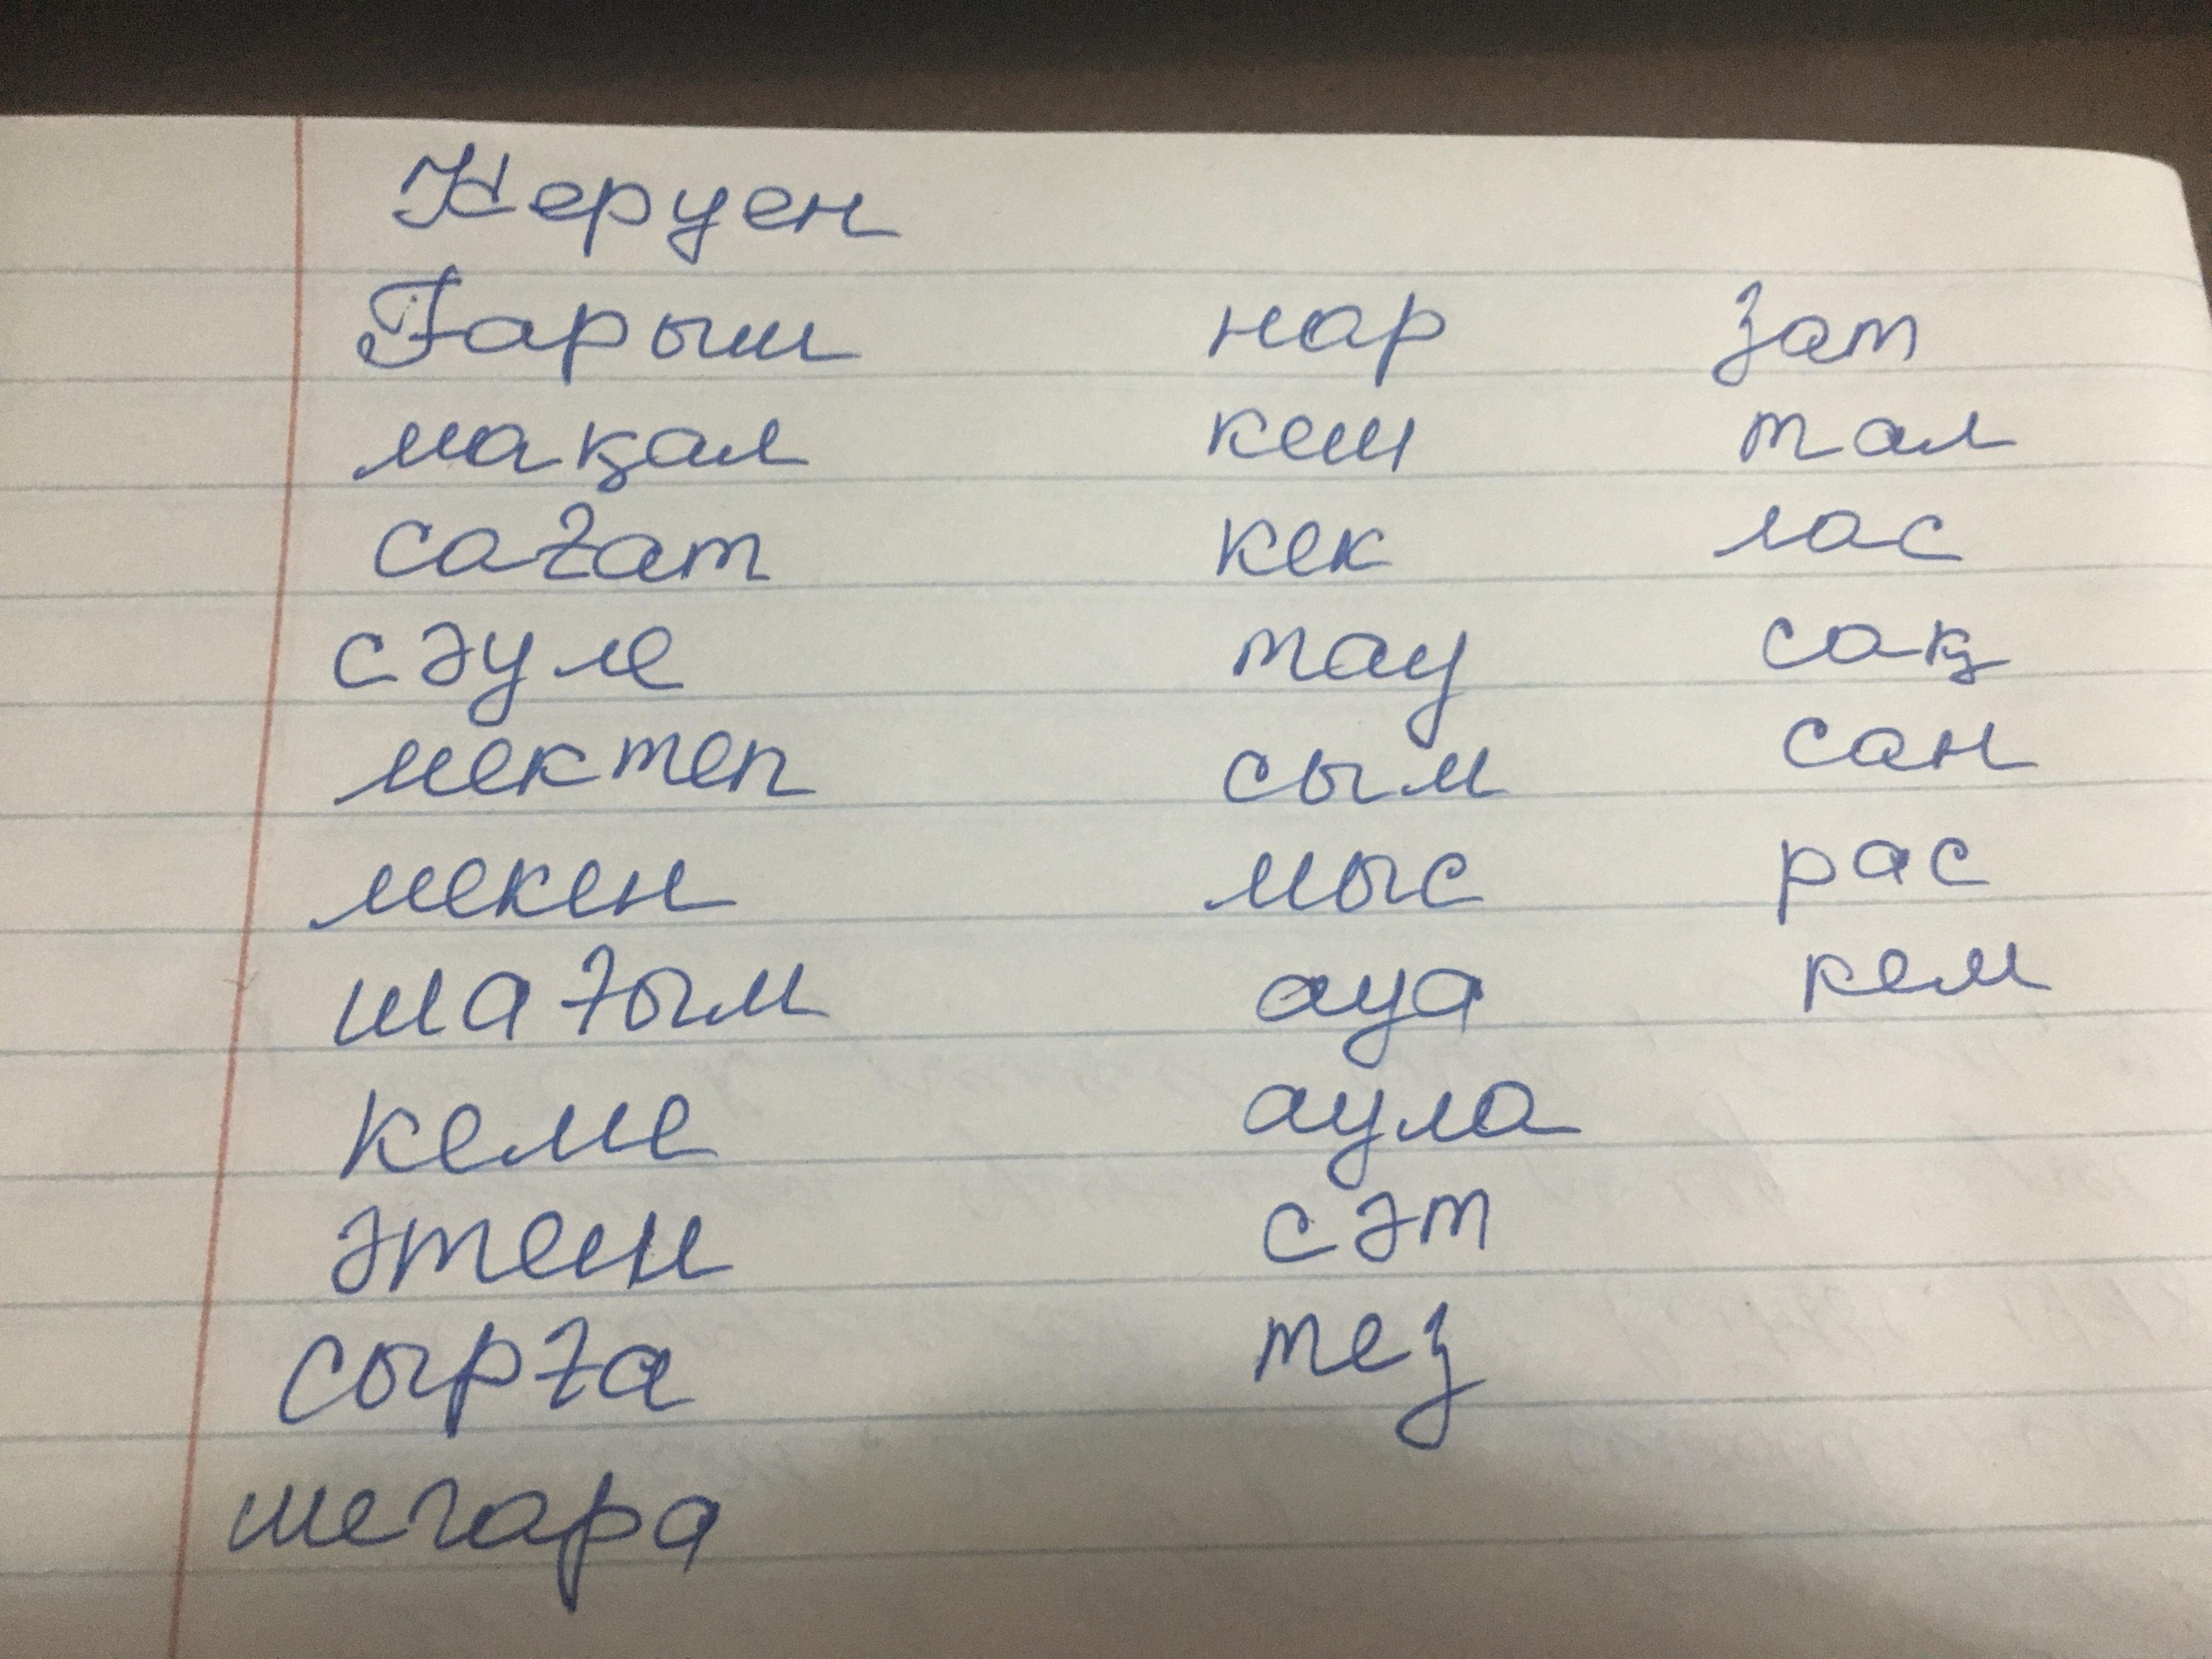 Керуен
Ғарыш нар зат
мақал кеш тал
сағат кек лас
сәуле тау сақ
мектеп сым сан
мекен мыс рас
шағым ауа кем
кеме аула
әтеш сәт
сырға тез
шегара